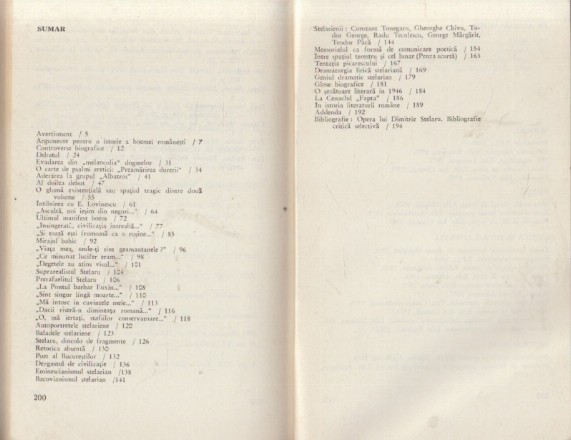 SUMAR
Avertisment / 5
Argument pentru o istorie a boemei românești / 7
Controversat biografice / 12
Debutul / 24
Evadarea din „melancolia” dogmelor / 31
O carte de psalmi eretici: „Preamărirea durerii” / 34
Aderarea la grupul „Albatros” / 41
Al doilea debut / 47
O glumă existențială sau spațiul tragic dintre două
volume / 55
Întîlnirea cu E. Lovinescu / 61
„Ascultă, noi ieșim din neguri...” / 64
Ultimul manifest boem / 72
/ 77
„Și toată este frumoasă ca o rușine...” / 85
Mirajul bahic / 92
„Viața mea, unde-ți sînt geamantanele?” / 96
„Ce minunat lucifer eram...” / 98
„Degetele au atins visul...” / 101
Suprarealistul Stelaru / 104
Prerafaelitul Stelaru / 106
„La Pontul barbar Euxin...” / 108
„Sînt singur lîngă moarte...” / 110
„Mă întorc în cuvintele mele...” / 113
„Dacii rîstră-n dimineața romană...” / 116
„O, mă iertați, stafiilor conservatoare...” / 118
Autoportretele stelariene / 120
Baladele stelariene / 123
Stelaru, dincolo de fragmente / 126
Retorica absentă / 130
Poet al Bucureștilor / 132
Dezgustul de civilizație / 136
Eminescianismul stelarian /138
Bacovianismul stelarian /141
200
Stelarienii: Constant Tonegaru, Gheorghe Chivu, Tu-
dor George, Radu Teculescu, George Mărgărit,
Teodor Pâcă / 144
Memorialul ca formă de comunicare poetică / 154
Între spațiul terestru și cel lunar (Proza scurtă) / 163
Tentația picarescului / 167
Dramaturgia lirică stelariană / 169
Geniul dramatic stelarian / 179
Glose biografice / 181
O șezătoare literară în 1946 / 184
La Cenaclul „Fapta” / 186
În istoria literaturii române / 189
Addenda / 192
Bibliografie: Opera lui Dimitrie Stelaru. Bibliografie
critică selectivă / 194